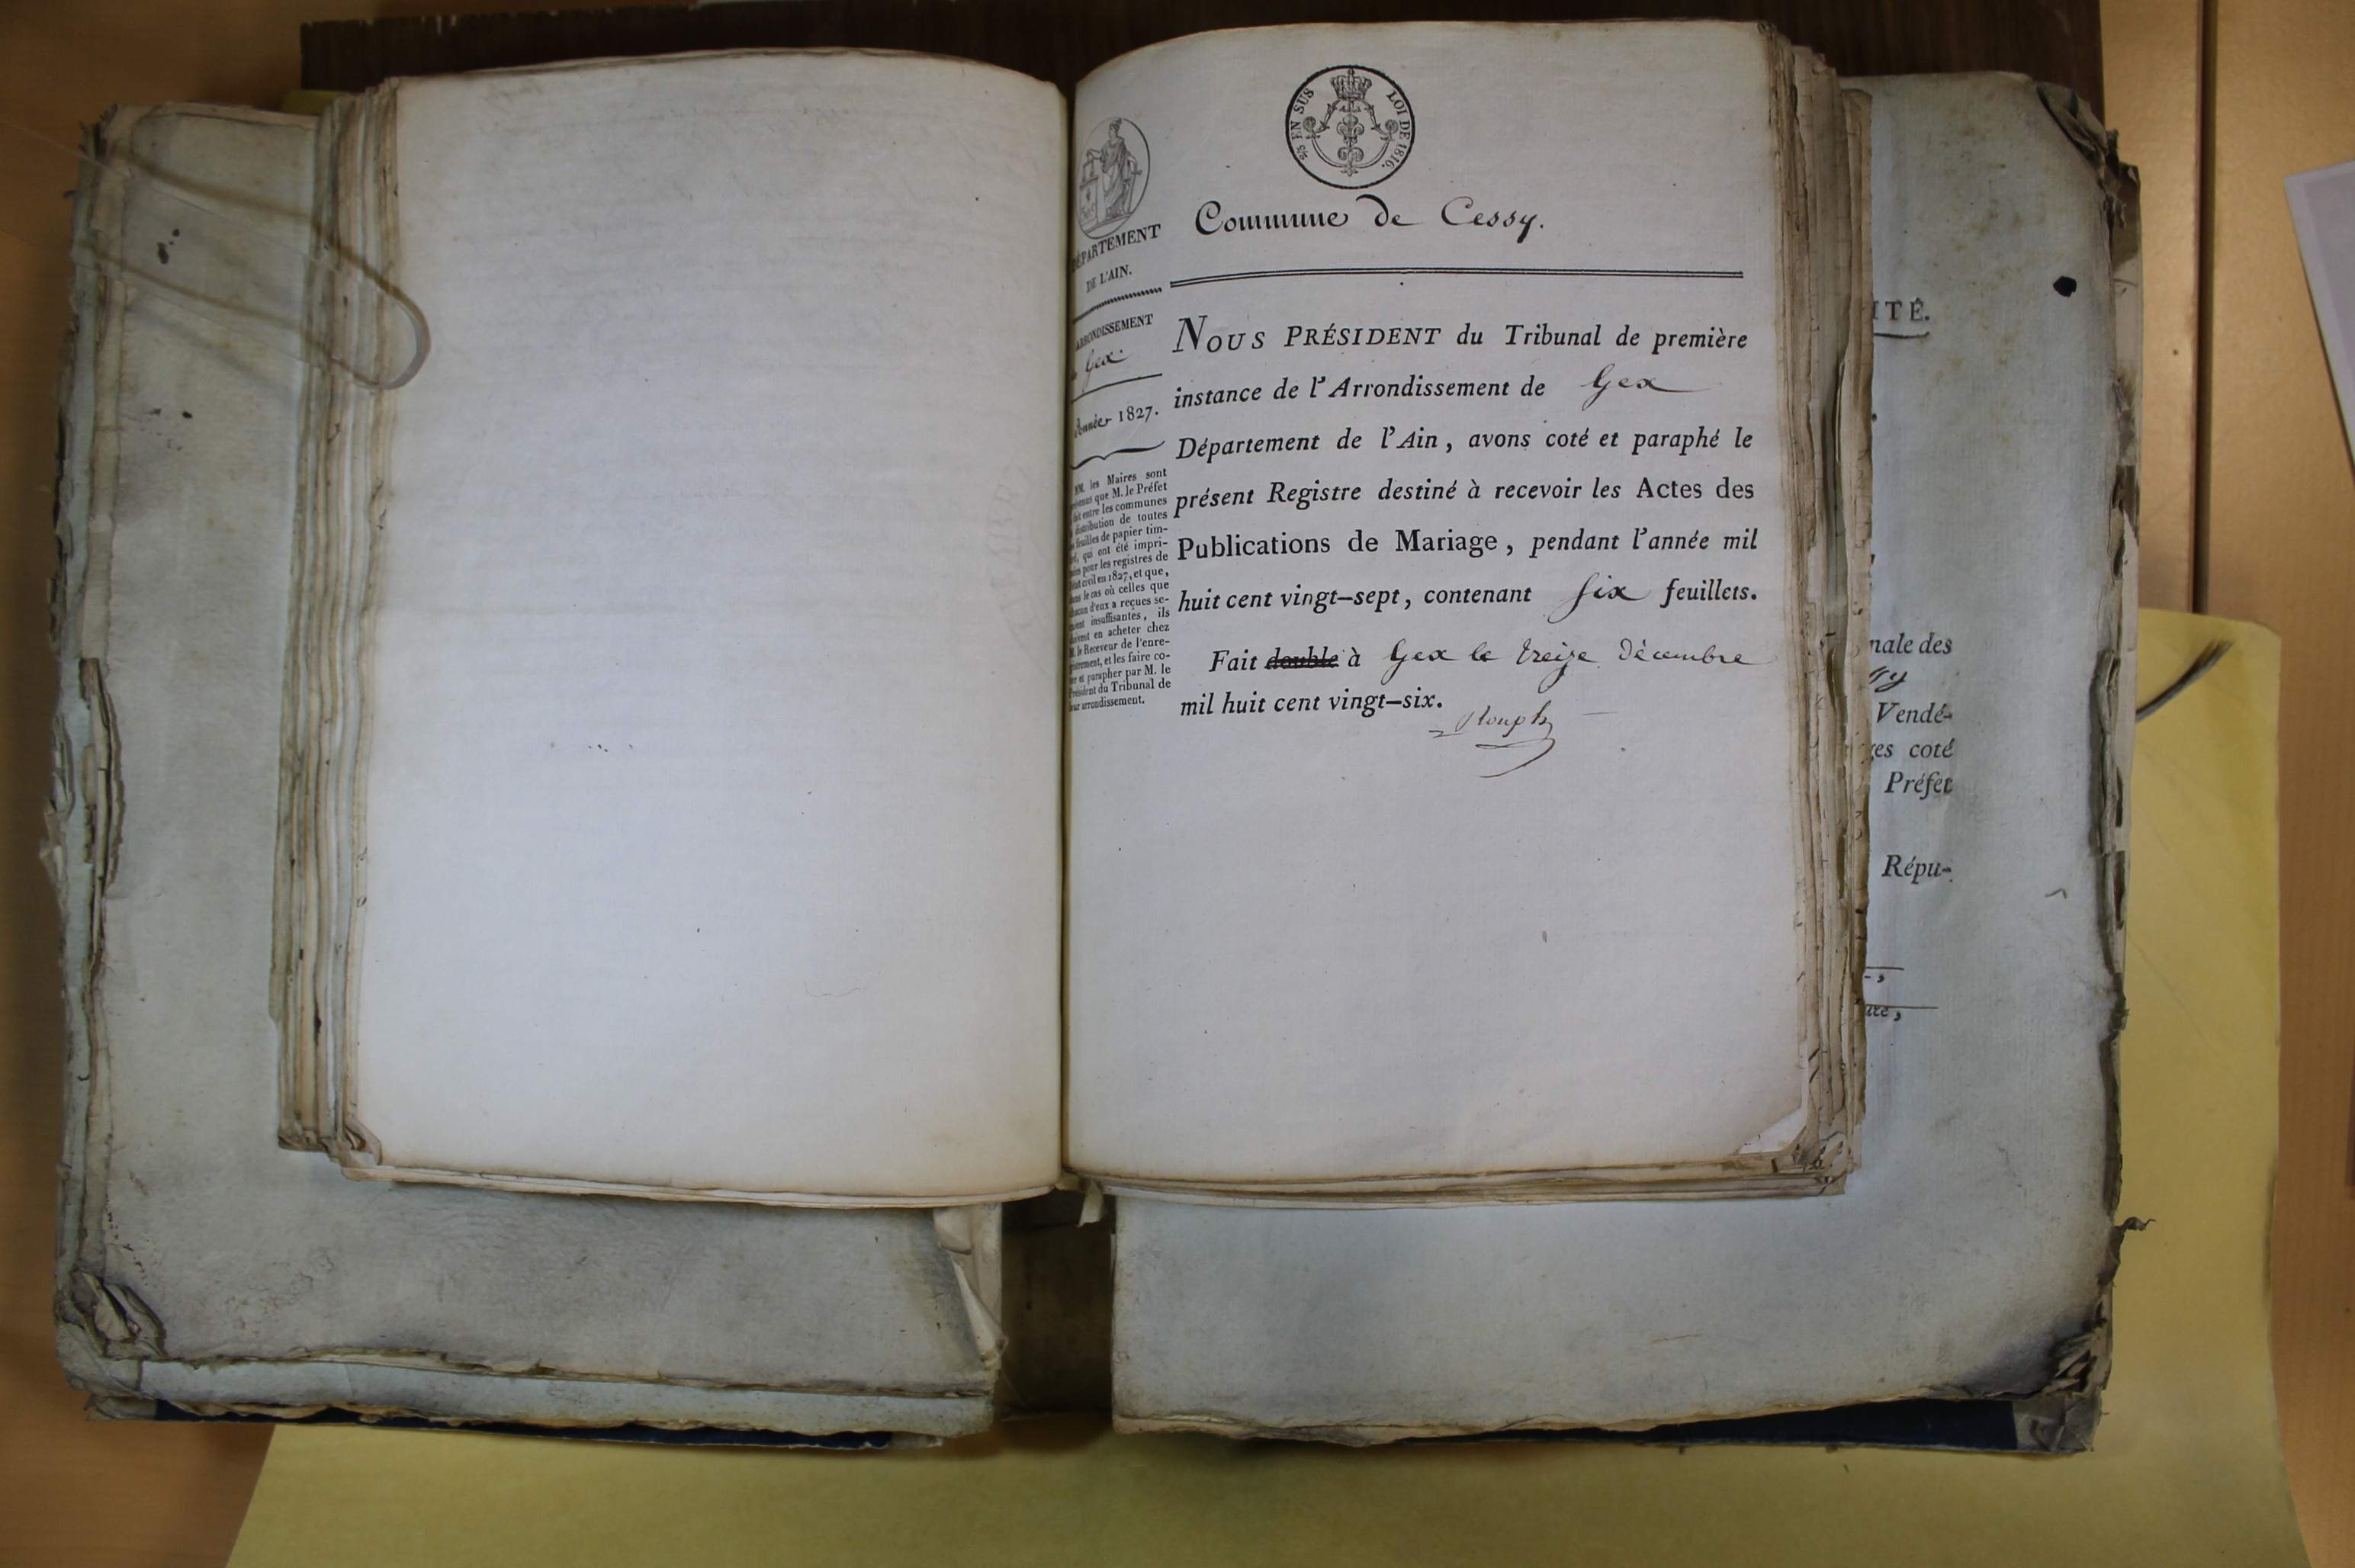 5/5 EN SUS LOI DE 1816.
DÉPARTEMENT
DE L'AIN.
ARRONDISSEMENT
Gex
Année 1827.
MM. les Maires sont
que M. le Préfet
fait entre les communes
distribution de toutes
feuilles de papier tim-
qui ont été impri-
pour les registres de
civil en 1827, et que,
le cas où celles que
d'eux a reçues se-
insuffisantes, ils
en acheter chez
M. le Receveur de l'enre-
gistrement, et les faire co-
ter et parapher par M. le
Président du Tribunal de
leur arrondissement.
Commune de Cessy.
NOUS PRÉSIDENT du Tribunal de première
instance de l'Arrondissement de Gex
Département de l'Ain, avons coté et paraphé le
présent Registre destiné à recevoir les Actes des
Publications de Mariage, pendant l'année mil
huit cent vingt-sept, contenant six feuillets.
Fait double à Gex le treize décembre
mil huit cent vingt-six.
ITÉ.
nale des
Vendé-
es coté
Préfet
Répu-